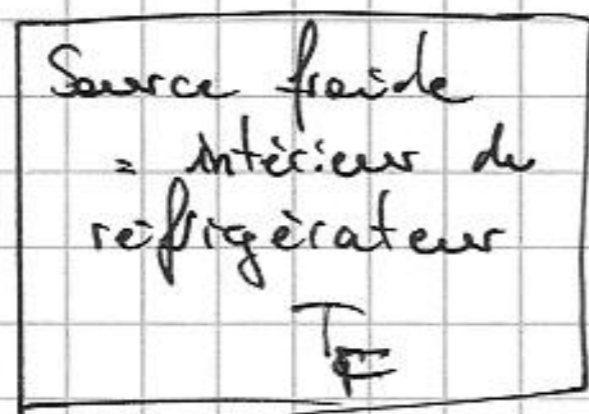 Source froide
= intérieur du
réfrigérateur
T_F